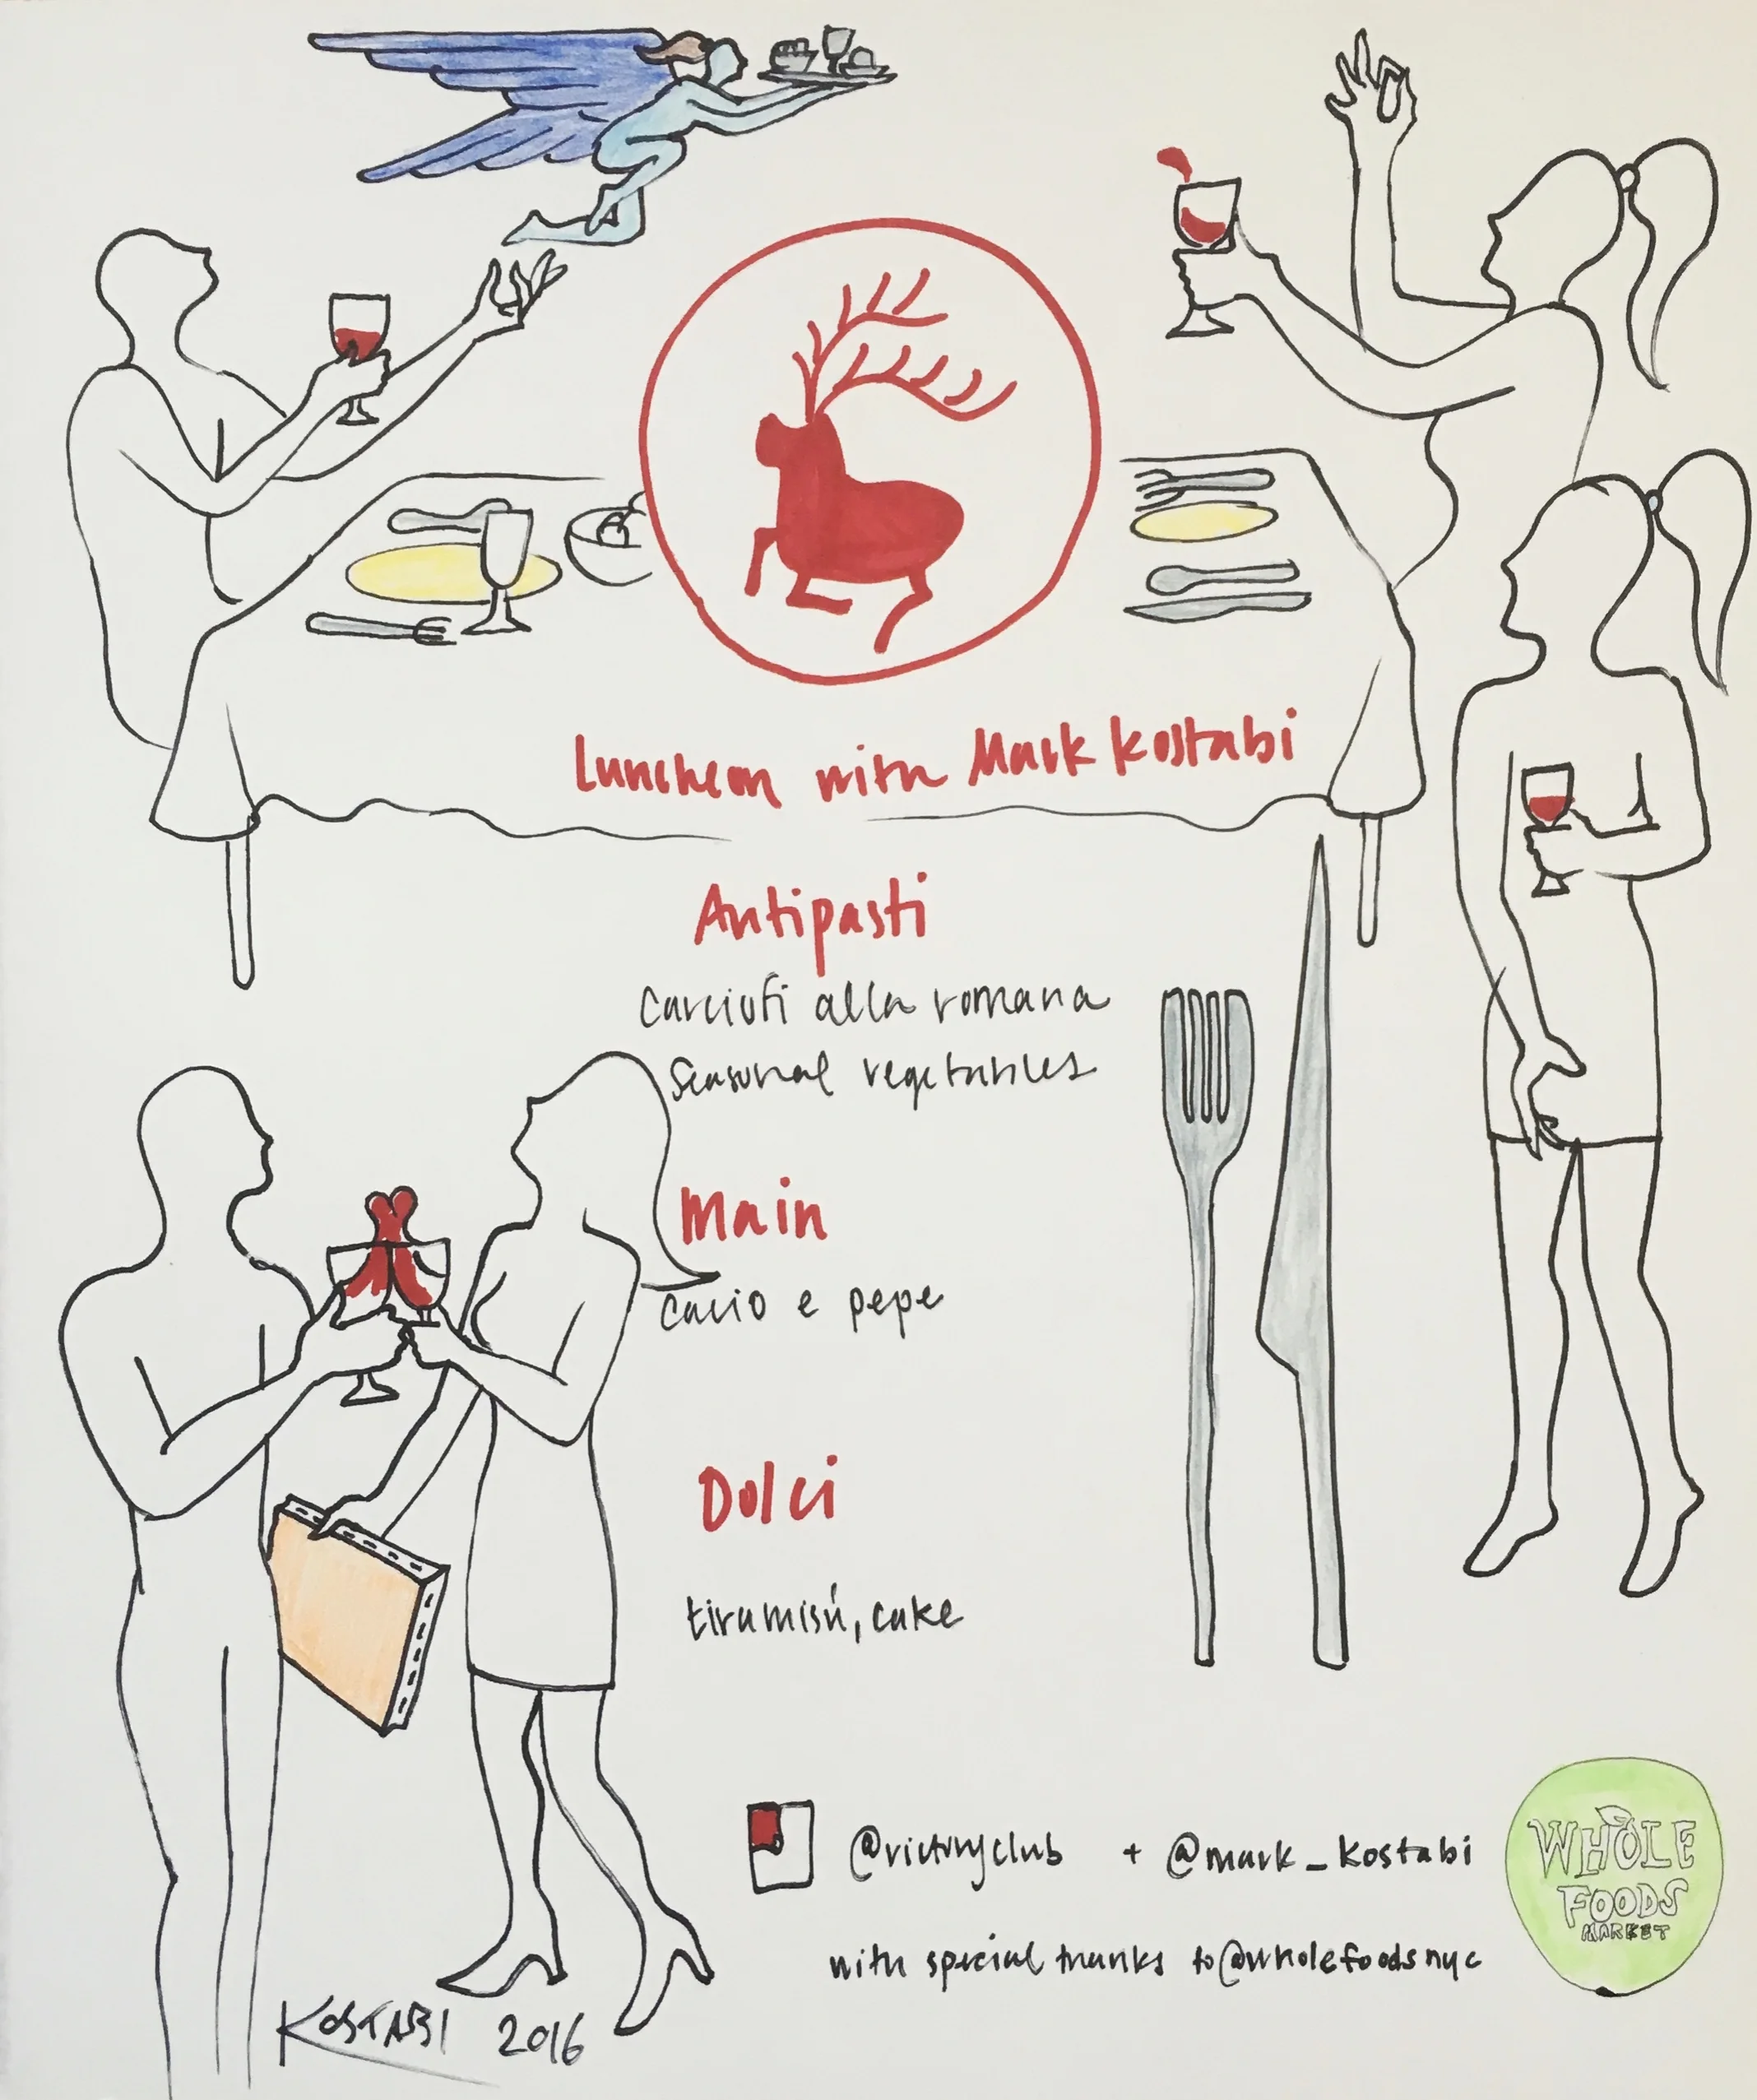 Luncheon with Mark Kostabi
Antipasti
Carciofi alla romana
Seasonal vegetables
Main
Cacio e pepe
Dolci
tiramisú, cake
@victoryclub + @mark_kostabi
with special thanks to @wholefoodsnyc
WHOLE
FOODS
MARKET
KOSTABI 2016